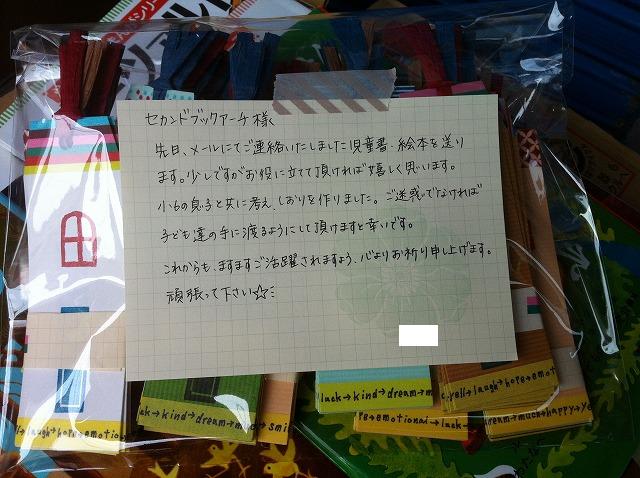 セカンドブックアーチ様
先日、メールにてご連絡いたしました児童書・絵本を送り
ます。少しですがお役に立てて頂ければ嬉しく思います。
小6の息子と共に考え、しおりを作りました。ご迷惑でなければ
子ども達の手に渡るようにして頂けますと幸いです。
これからも、ますますご活躍されますよう、心よりお祈り申し上げます。
頑張って下さい☆
lack→kind→dream→m
yell→laugh→hope→emot
laugh→hope→emotion
ack→kind→dream→mu
smi
re→emotional→lack→
dream→much→happy→ye